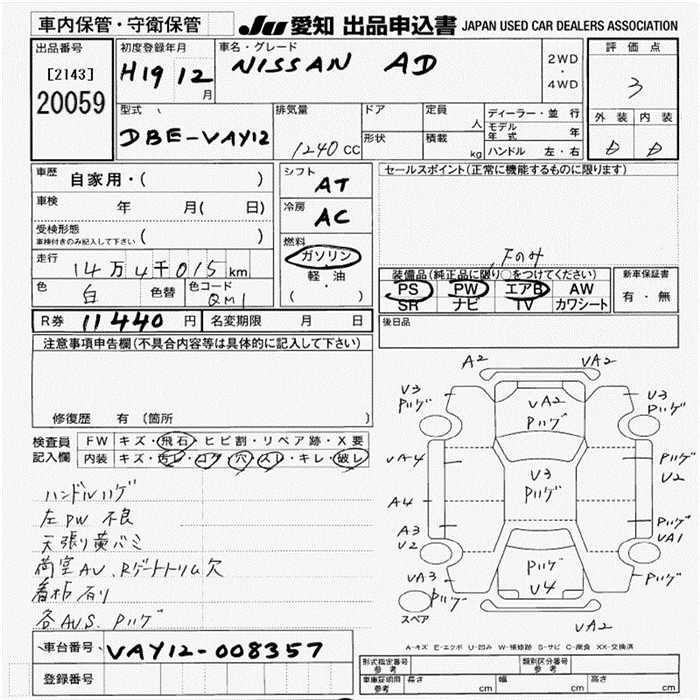 車内保管・守衛保管
JU 愛知 出品申込書 JAPAN USED CAR DEALERS ASSOCIATION
出品番号
[2143]
20059
初度登録年月
H19 12
月
車名・グレード
NISSAN AD
2WD
・
4WD
評価点
3
外装 内装
D D
型式
DBE-VAY12
排気量
1240 CC
ドア
形状
定員
人
積載
kg
ディーラー・並行
モデル年式 年
ハンドル 左・右
車歴 自家用・( )
車検 年 月( 日)
受検形態
車検付きのみ記入して下さい ( )
走行 14万4千015km
色 白 色替 色コード QM1
シフト AT
冷房 AC
燃料
ガソリン
軽・油
( )
セールスポイント(正常に機能するものに限ります)
下のみ
装備品(純正品に限り○をつけてください)
PS PW エアB AW
SR ナビ TV カワシート
新車保証書
有・無
後日品
R券 11440円 名変期限 月 日
注意事項申告欄(不具合内容等は具体的に記入して下さい)
修復歴 有 〔箇所 〕
検査員
記入欄
FW キズ・飛石・ヒビ割・リペア跡・X要
内装 キズ・汚レ・コゲ・穴・スレ・キレ・破レ
ハンドルハゲ
左PW 不良
天張り黄バミ
荷室AU、Rゲートトリム欠
看板有り
各AUS、Pハゲ
A2
VA2
V3
Pハゲ
VA2
Pハゲ
V3
Pハゲ
VA4
V3
Pハゲ
Pハゲ
U2
A4
A3
U2
Pハゲ
VA1
VA3
Pハゲ
Pハゲ
U4
Pハゲ
スペア
VA2
A-キズ E-エクボ U-凹み W-補修跡 S-サビ C-腐食 XX-交換済
車台番号 VAY12-008357
登録番号
形式指定番号
参考
類別区分番号
参考
車庫証明用
参考
長さ cm 幅 cm 高さ cm